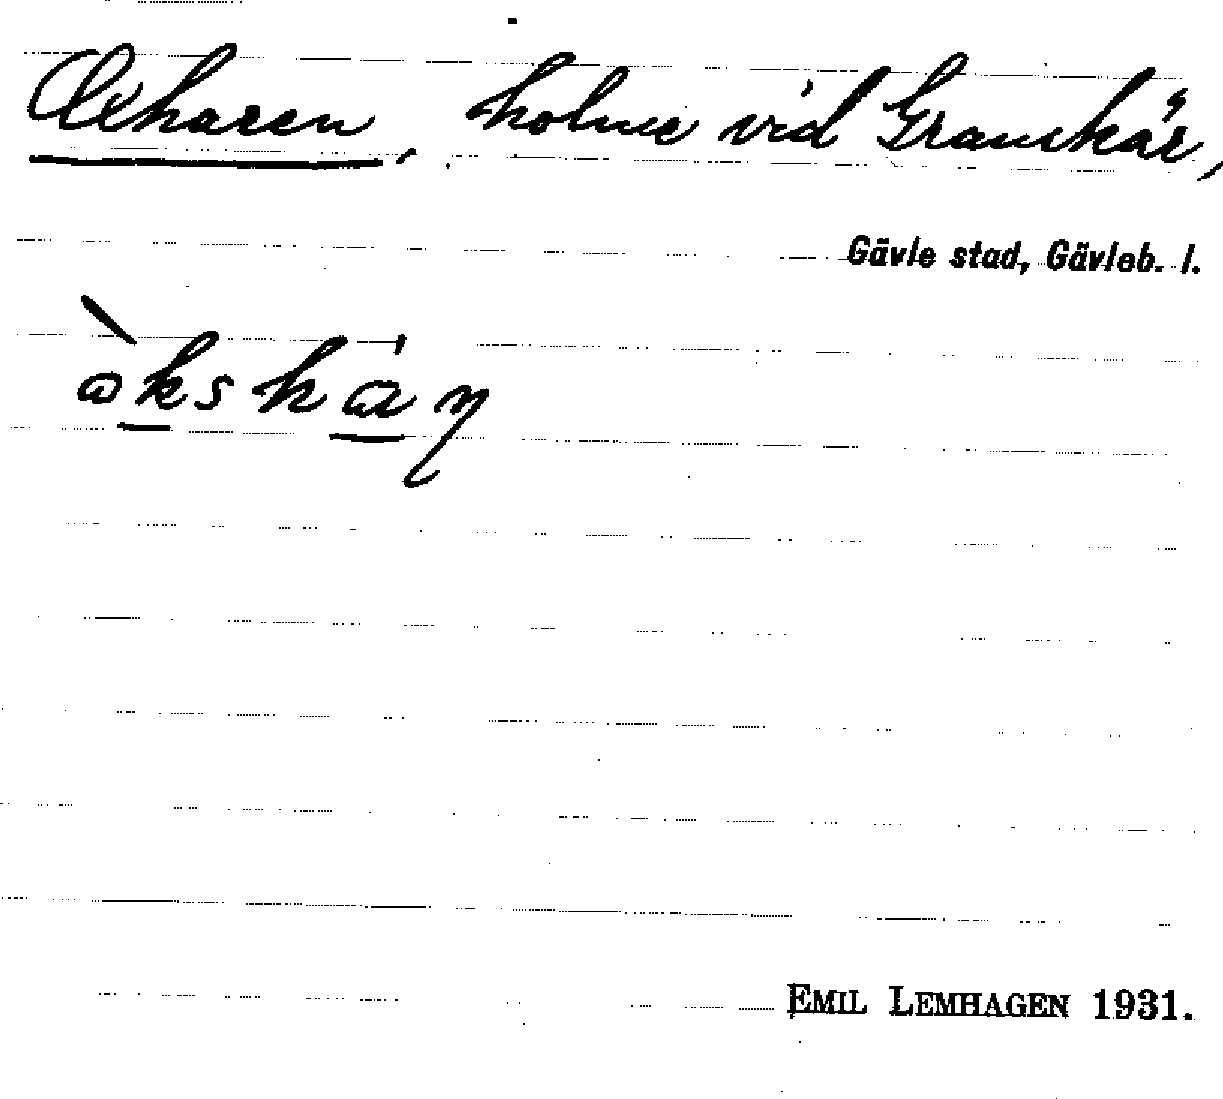 Oxharen, holme vid Granskär,
Gävle stad, Gävleb. l.
EMIL LEMHAGEN 1931.